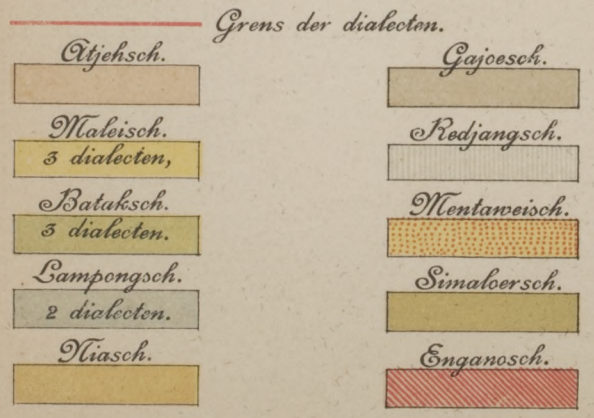 Grens der dialecten.
Atjehsch.
Maleisch.
3 dialecten,
Bataksch.
3 dialecten.
Lampongsch.
2 dialecten.
Niasch.
Gajoesch.
Redjangsch.
Mentaweisch.
Simaloersch.
Enganosch.